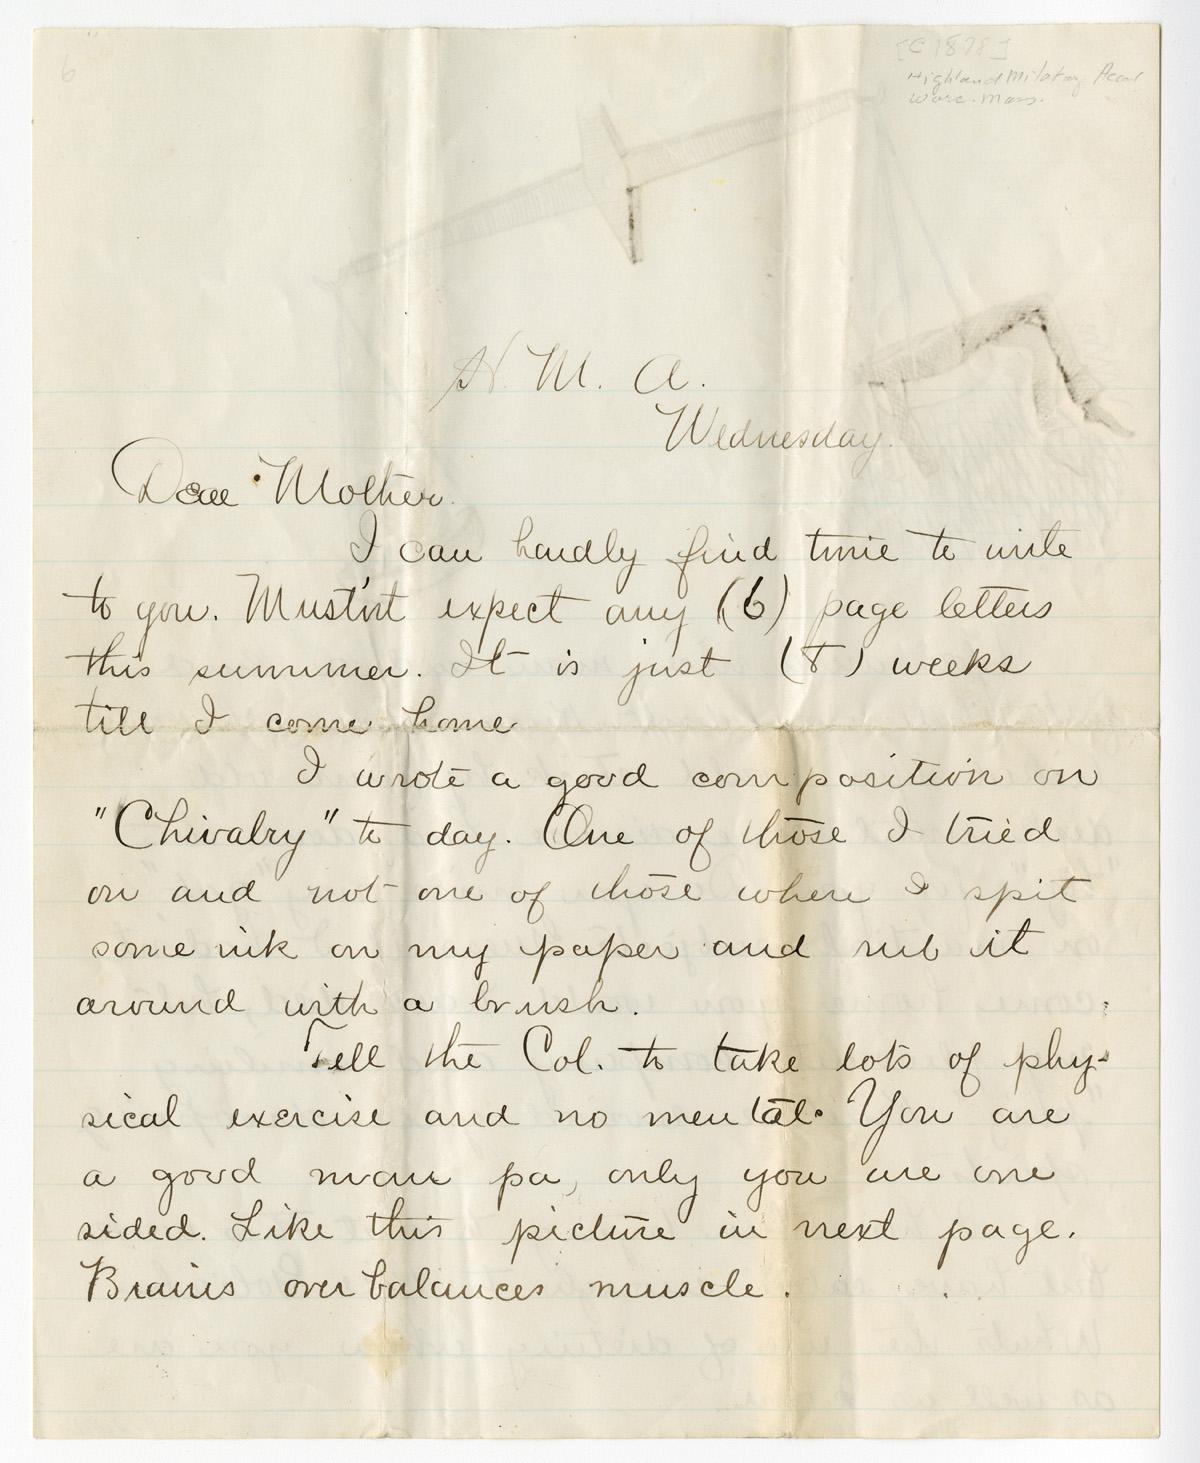 6
[C 1878]
Highland Military Acad
Worc. Mass.
H. M. A.
Wednesday.
Dear Mother.
I can hardly find time to write
to you. Must'nt expect any (6) page letters
this summer. It is just (8) weeks
till I come home
I wrote a good composition on
"Chivalry" to day. One of those I tried
on and not one of those where I spit
some ink on my paper and rub it
around with a brush.
Tell the Col. to take lots of phy-
sical exercise and no mental. You are
a good man pa, only you are one
sided. Like this picture in next page.
Brains overbalances muscle.